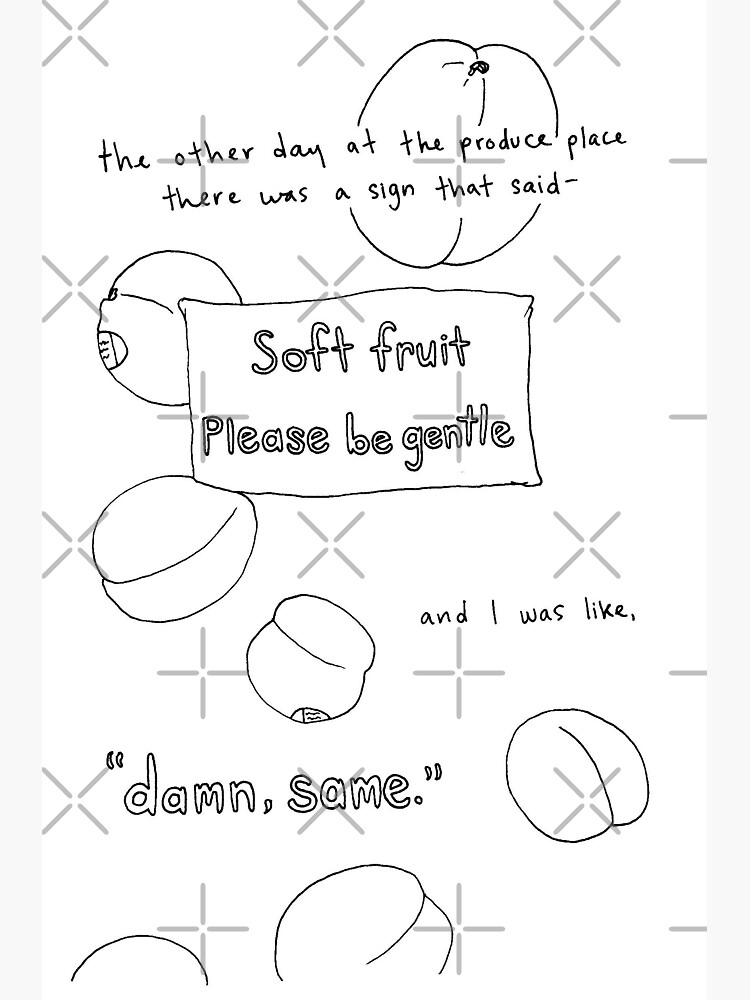 the other day at the produce place
there was a sign that said-
Soft fruit
Please be gentle
and I was like,
"damn, same."